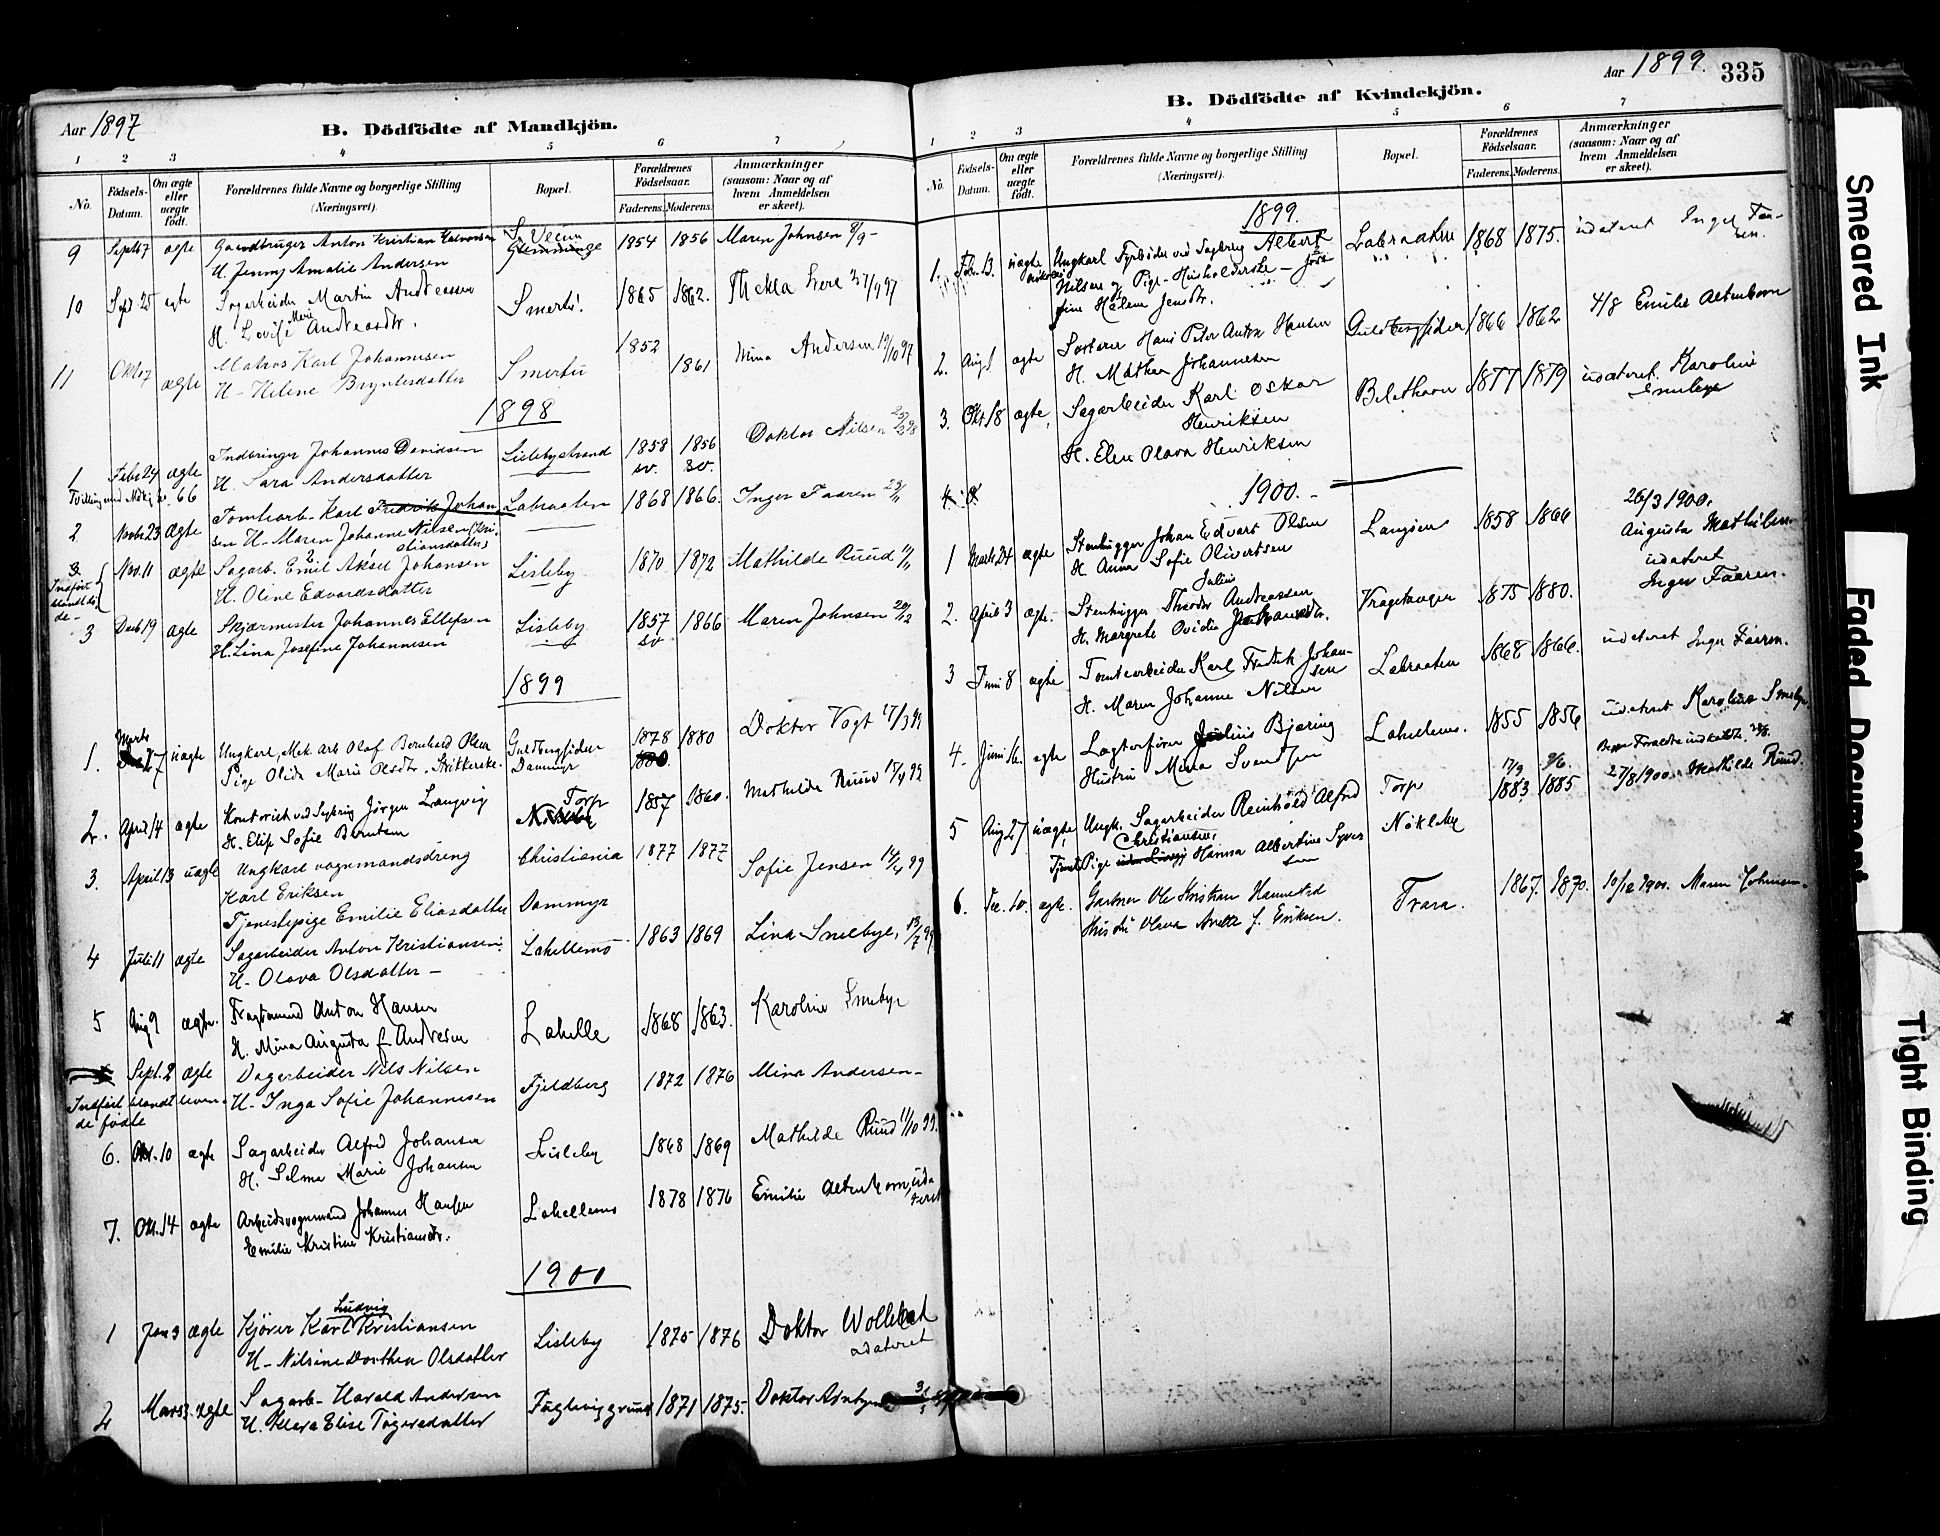 Aar 1897
B. Dödfödte af Mandkjön.
1 2 3 4 5 6 7
No. Födsels-Datum. Om ægte eller uægte födt. Forældrenes fulde Navne og borgerlige Stilling (Næringsvei). Bopæl. Forældrenes Födselsaar. Faderens. Moderens. Anmærkninger (saasom: Naar og af hvem Anmeldelsen er skeet).
9 Septb 7 ægte Gaardbruger Anton Kristian Halvorsen Glemminge 1854 1856 Maren Johnsen 8/9-
H. Jenny Amalie Andersen
10 Sept 25 ægte Sagarbeider Martin Andreassen Smertu. 1865 1862. Thekla 27/9 97
H. Lovise Marie Andreasdtr.
11 Oktb 7 ægte Matros Karl Johannesen Smertu 1852 1861 Mina Andersen 19/10 97
H- Helene Bryntesdatter
1898
1 Febr 24 ægte Indbringer Johannes Davidsen Lislebystrand 1858 sv. 1856 sv. Doktor Nilsen 25/2 98
H. Sara Andersdatter
Tvilling med Mdkj No. 66
2 Novbr 23 ægte Tomtearb. Karl Fredrik Johansen Labraaten 1868 1866. Inger Faaren 23/11
H- Maren Johanne Nilsen (Kristiansdatter)
3 Nov. 11 ægte Sagarb. Emil Aksel Johansen Lisleby 1870 1872 Mathilde Ruud 11/11
Indført blandt de- H. Oline Edvardsdatter
3 Decb 19 ægte Skjærmester Johannes Ellefsen Lisleby 1857 sv 1866 Maren Johnsen 20/12
H. Lina Josefine Johannesen
1899
1. Marts 7 uægte Ungkarl, Mek. arb Olaf Bernhard Olsen Guldbergsiden 1878 1880 Doktor Vogt 17/3 99
Pige Olide Marie Olsdtr. Strikkerske. Dammyr
2. April 14 ægte Kontorist ved Jørgen Langvig Torp 1857 1860. Mathilde Ruud 15/4 92
H. Elise Sofie Berntsen
3. April 13 uægte Ungkarl vognmandsdreng Christiania 1877 1877 Sofie Jensen 14/4 99
Karl Eriksen
Tjenestepige Emilie Eliasdatter Dammyr
4 Juli 11 ægte Sagarbeider Anton Kristiansen. Lahellemo 1863 1869 Lina Smebye, 13/7 99
H- Olava Olsdatter -
5 Aug 9 ægte. Fragtemand Anton Hansen Lahelle 1868 1863. Karoline Smebye
H. Mina Augusta f. Andresen
Sept. 2 ægte Dagarbeider Nils Nilsen Fjeldberg 1872 1876 Mina Andersen-
Indført blandt levende fødte H- Inga Sofie Johannesen
6. Okt. 10 ægte Sagarbeider Alfred Johansen Lisleby 1868 1869 Mathilde Ruud 11/10 99.
H. Selma Marie Johansen
7. Okt. 14 ægte Arbeidsvognmand Johannes Hansen Lahellemo 1878 1876 Emilie Altenborn, udateret
Emilie Kristine Kristiansdtr.
1900
1 Jan 3 ægte Kjører Karl Ludvig Kristiansen Lisleby 1875 1876 Doktor Wollebæk udateret
H- Nilsine Dorthea Olsdatter
2 Mars 3 ægte Sagarb- Harald Andersen Fuglevigsgrund 1871 1875. Doktor
H. Klara Elise Tøgersdatter
Aar 1899. 335
B. Dödfödte af Kvindekjön.
1 2 3 4 5 6 7
No. Födsels-Datum. Om ægte eller uægte födt. Forældrenes fulde Navne og borgerlige Stilling (Næringsvei). Bopæl. Forældrenes Födselsaar. Faderens. Moderens. Anmærkninger (saasom: Naar og af hvem Anmeldelsen er skeet).
1899.
1. Feb. 13. uægte Ungkarl Fyrbøder ved Sagbrug Albert Labraaten 1868 1875. udateret Inger Faaren.
Nilsen og Pige - Husholderske - Josefine Helene Jensdtr.
2. Aug 1 ægte Sorterer Hans Peter Anton Hansen Guldbergsiden 1866 1862 4/8 Emilie Altenborn
H. Mathea Johannesen
3. Okt. 18 ægte, Sagarbeider Karl Oskar Henriksen 1877 1879 udateret, Karoline Smebye
H. Elen Olava Henriksen
1900.-
1 Marts 24 ægte Stenhugger Johan Edvart Olsen Langøen 1858 1866 26/3 1900. Augusta Mathilsen
H Anna Sofie Olivertsen
2. April 3 ægte- Stenhugger Theodor Julius Andreassen Kragetangen 1875 1880. udateret Inger Faaren.
H. Margrete Ovidia
3 Juni 8 ægte Tomtearbeider Karl Fredrik Johansen Labraaten 1868 1866. udateret Inger Faaren.
H. Maren Johanne Nilsen
4. Juni 16. ægte Bjering Lahellemo. 1855 1856 udateret Karoline Smebye
Hustru Mina Svendsen
5 Aug 27 uægte, Ungk. Sagarbeider Reinhold Alfred Christiansen, Torp 17/9 1883 9/6 1885 27/8 1900. Mathilde Ruud.
Tjeneste Pige Hanna Albertine Syversen Nøkleby
6. Dec. 10. ægte. Gartner Ole Kristian Hannestad Trara. 1867. 1870. 10/12 1900. Maren Johnsen.
Hustru Olava Anette f. Eriksen.
Smeared Ink
Faded Document
Tight Binding